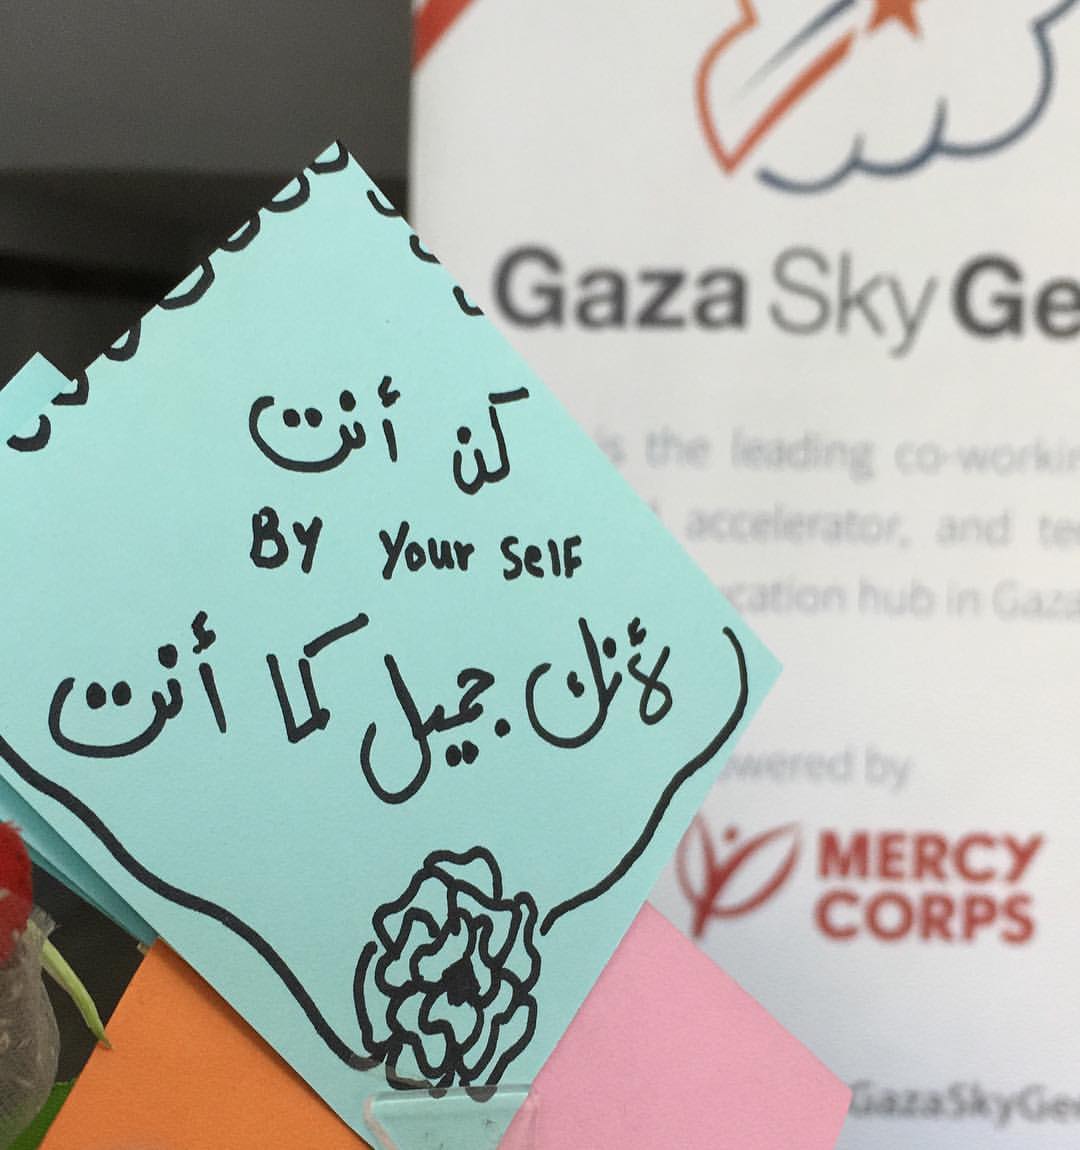 كن أنت
By Your Self
لأنك جميل كما أنت
Gaza Sky Ge
is the leading co-workin
accelerator, and te
cation hub in Gaza
wered by
MERCY
CORPS
GazaSkyGee